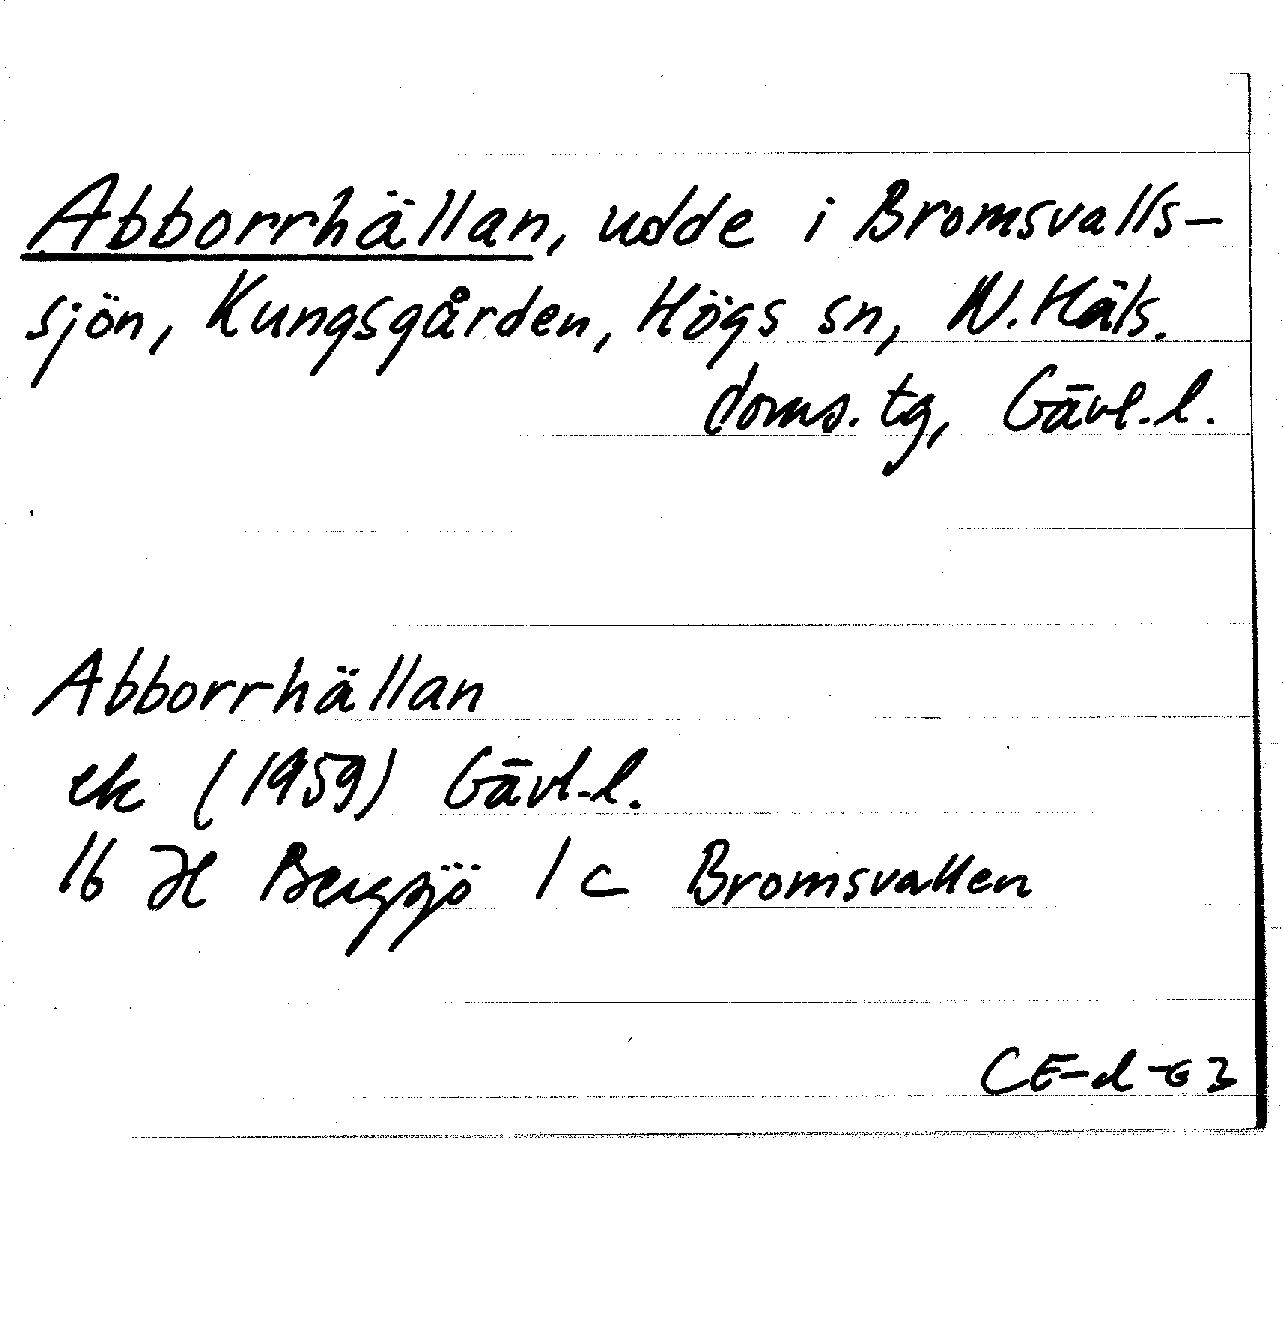 Abborrhällan, udde i Bromsvalls-
sjön, Kungsgården, Högs sn, N. Häls.
doms. tg, Gävl. l.
Abborrhällan
ek (1959) Gävl. l.
16 H Bergsjö 1 c Bromsvallen